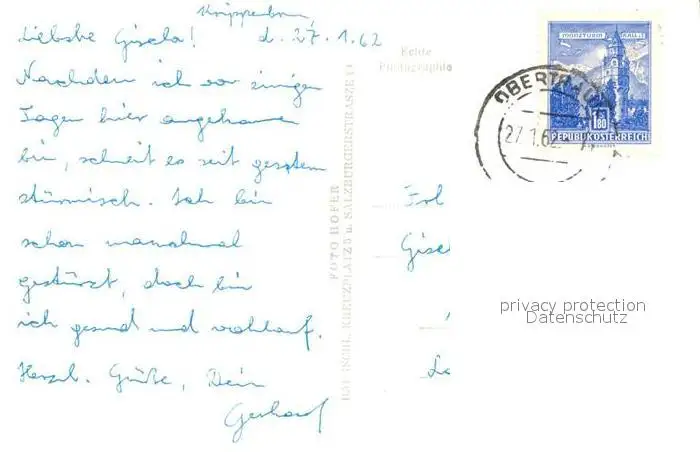 Krippenbrn
Liebste Gisela! d. 27.1.62
Nachdem ich vor einigen
Tagen hier angekommen
bin, schneit es seit gestern
stürmisch. Ich bin
schon manchmal
gestürzt, doch bin
ich gesund und wohlauf.
Herzl. Grüße, Dein
Gerhard
Echte
Photographie
FOTO HOFER
BAD ISCHL, KREUZPLATZ 5 u. SALZBURGERSTRASZE 14
MÜNZTURM HALL i. T.
S 1.80
REPUBLIK ÖSTERREICH
OBERTRAUN
27.1.62
Frl
Gise
privacy protection
Datenschutz